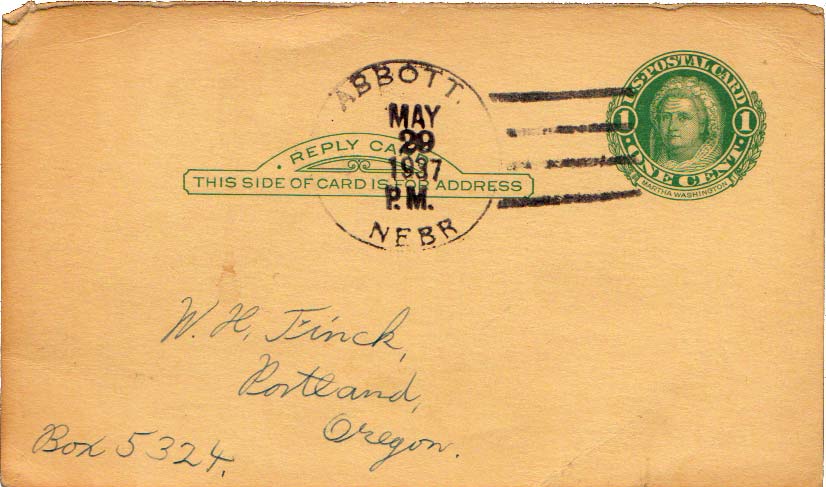 ABBOTT.
MAY
29
1937
P.M.
NEBR
U.S. POSTAL CARD
1 1
ONE CENT
MARTHA WASHINGTON
REPLY CARD
THIS SIDE OF CARD IS FOR ADDRESS
W. H. Finck,
Portland,
Oregon.
Box 5324.